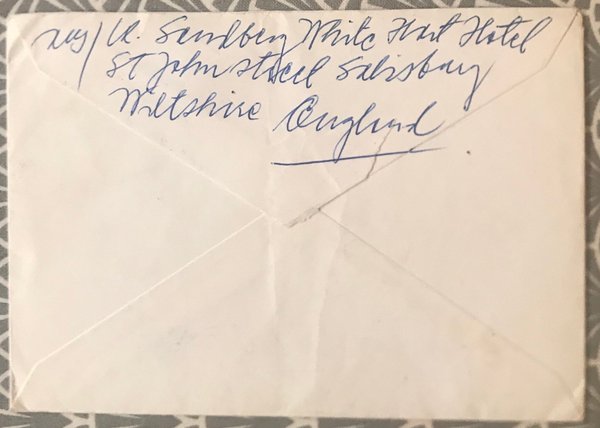 U. Sandberg White Hart Hotel
St John Street Salisbury
Wiltshire England